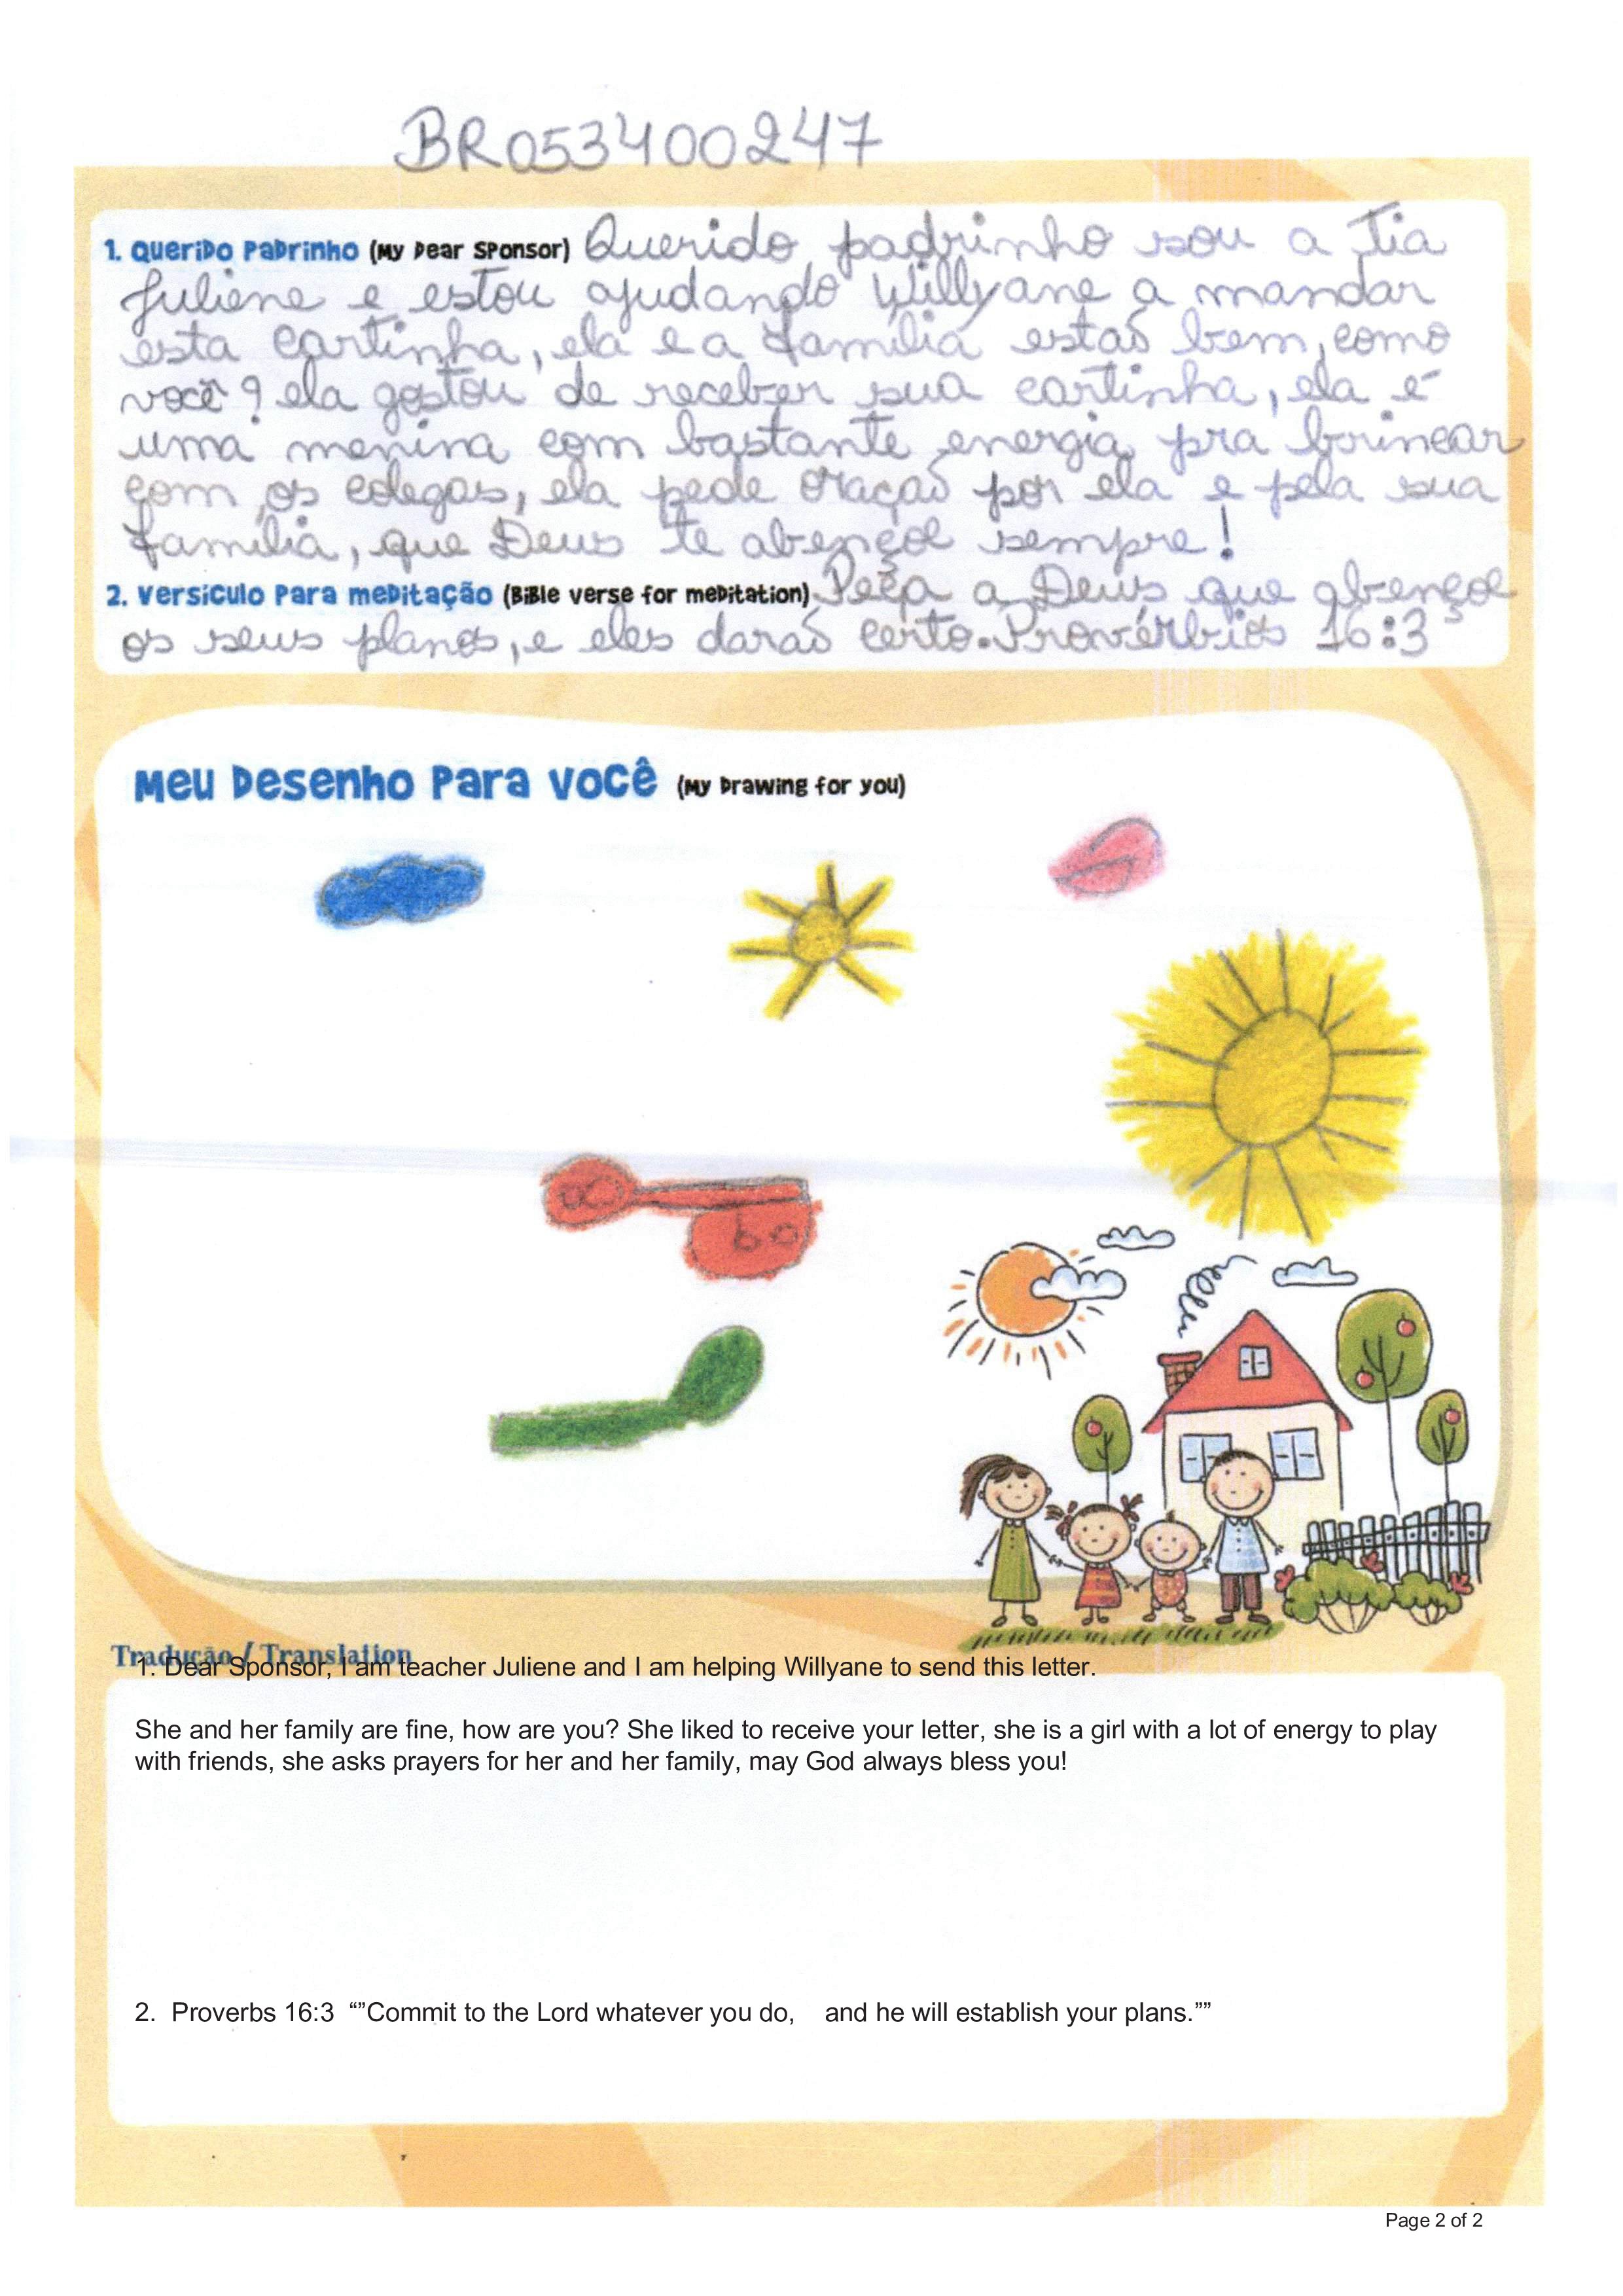 BR053400247
1. Querido Padrinho (My Dear Sponsor) Querido padrinho sou a Tia
Juliene e estou ajudando Willyane a mandar
esta cartinha, ela e a família estaõ bem, como
você? ela gostou de receber sua cartinha, ela é
uma menina com bastante energia pra brincar
com os colegas, ela pede oraçaõ por ela e pela sua
família, que Deus te abençoe sempre!
2. Versículo Para meditação (Bible verse for meditation) Peça a Deus que abençoe
os seus planos, e eles daraõ certo. Provérbios 16:3
Meu Desenho Para você (My Drawing for you)
Tradução / Translation
1. Dear Sponsor, I am teacher Juliene and I am helping Willyane to send this letter.
She and her family are fine, how are you? She liked to receive your letter, she is a girl with a lot of energy to play
with friends, she asks prayers for her and her family, may God always bless you!
2. Proverbs 16:3 “”Commit to the Lord whatever you do, and he will establish your plans.””
Page 2 of 2